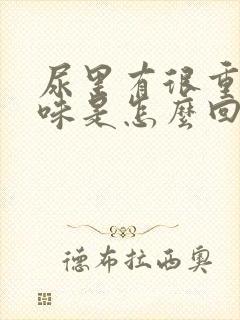 尿里有很重
味是怎麽回
德布拉西奥